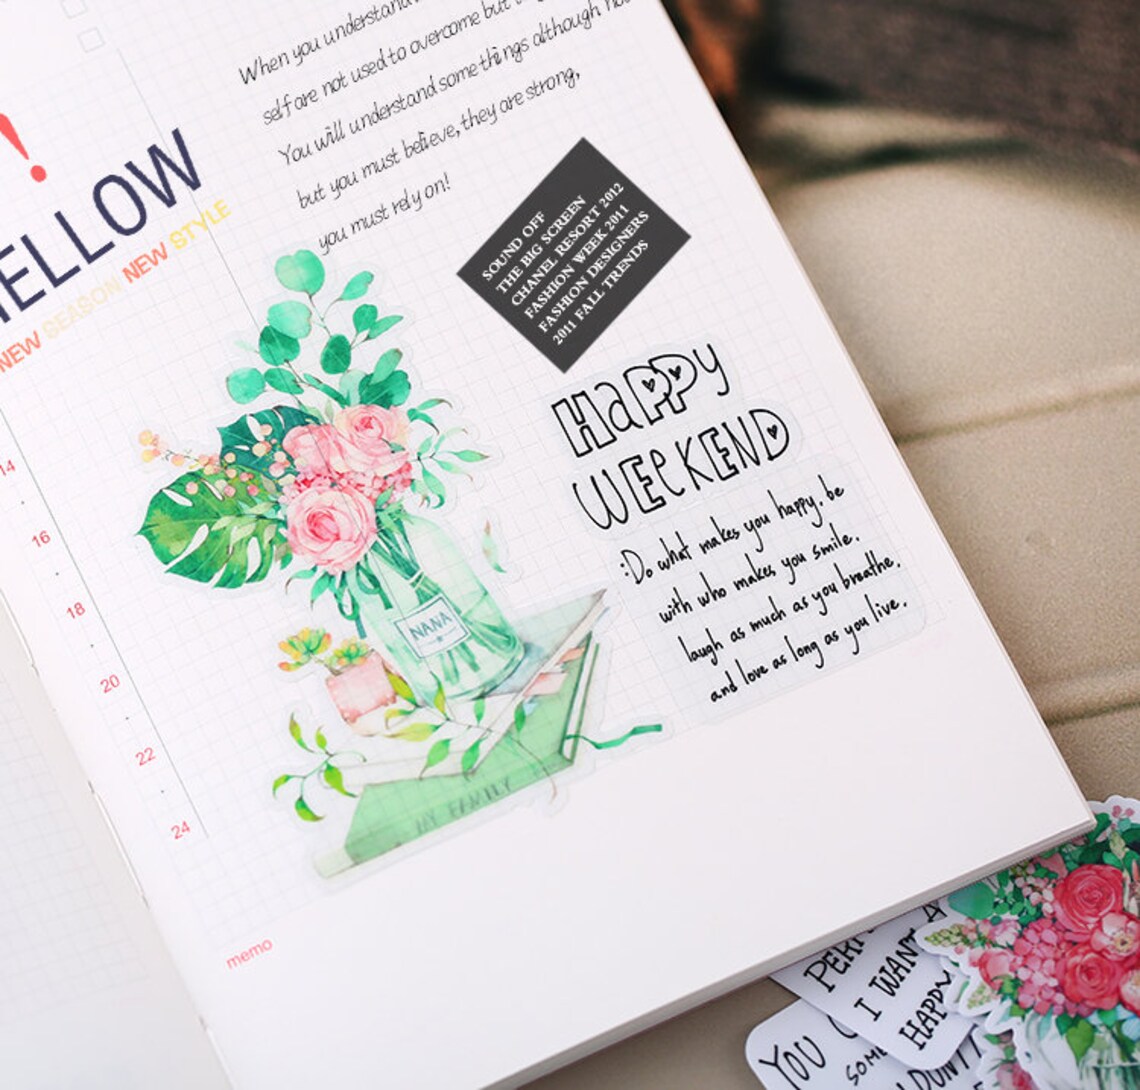 When you understand
self are not used to overcome but
You will understand some things although
but you must believe, they are strong,
you must rely on!
!
ELLOW
NEW SEASON NEW STYLE
SOUND OFF
THE BIG SCREEN
CHANEL RESORT 2012
FASHION WEEK 2011
FASHION DESIGNERS
2011 FALL TRENDS
HaPPy
WEEKEND
:Do what makes you happy. be
with who makes you smile.
laugh as much as you breathe.
and love as long as you live.
NANA
MY FAMILY
14
16
18
20
22
24
memo
I WANT
HAPPY
YOU